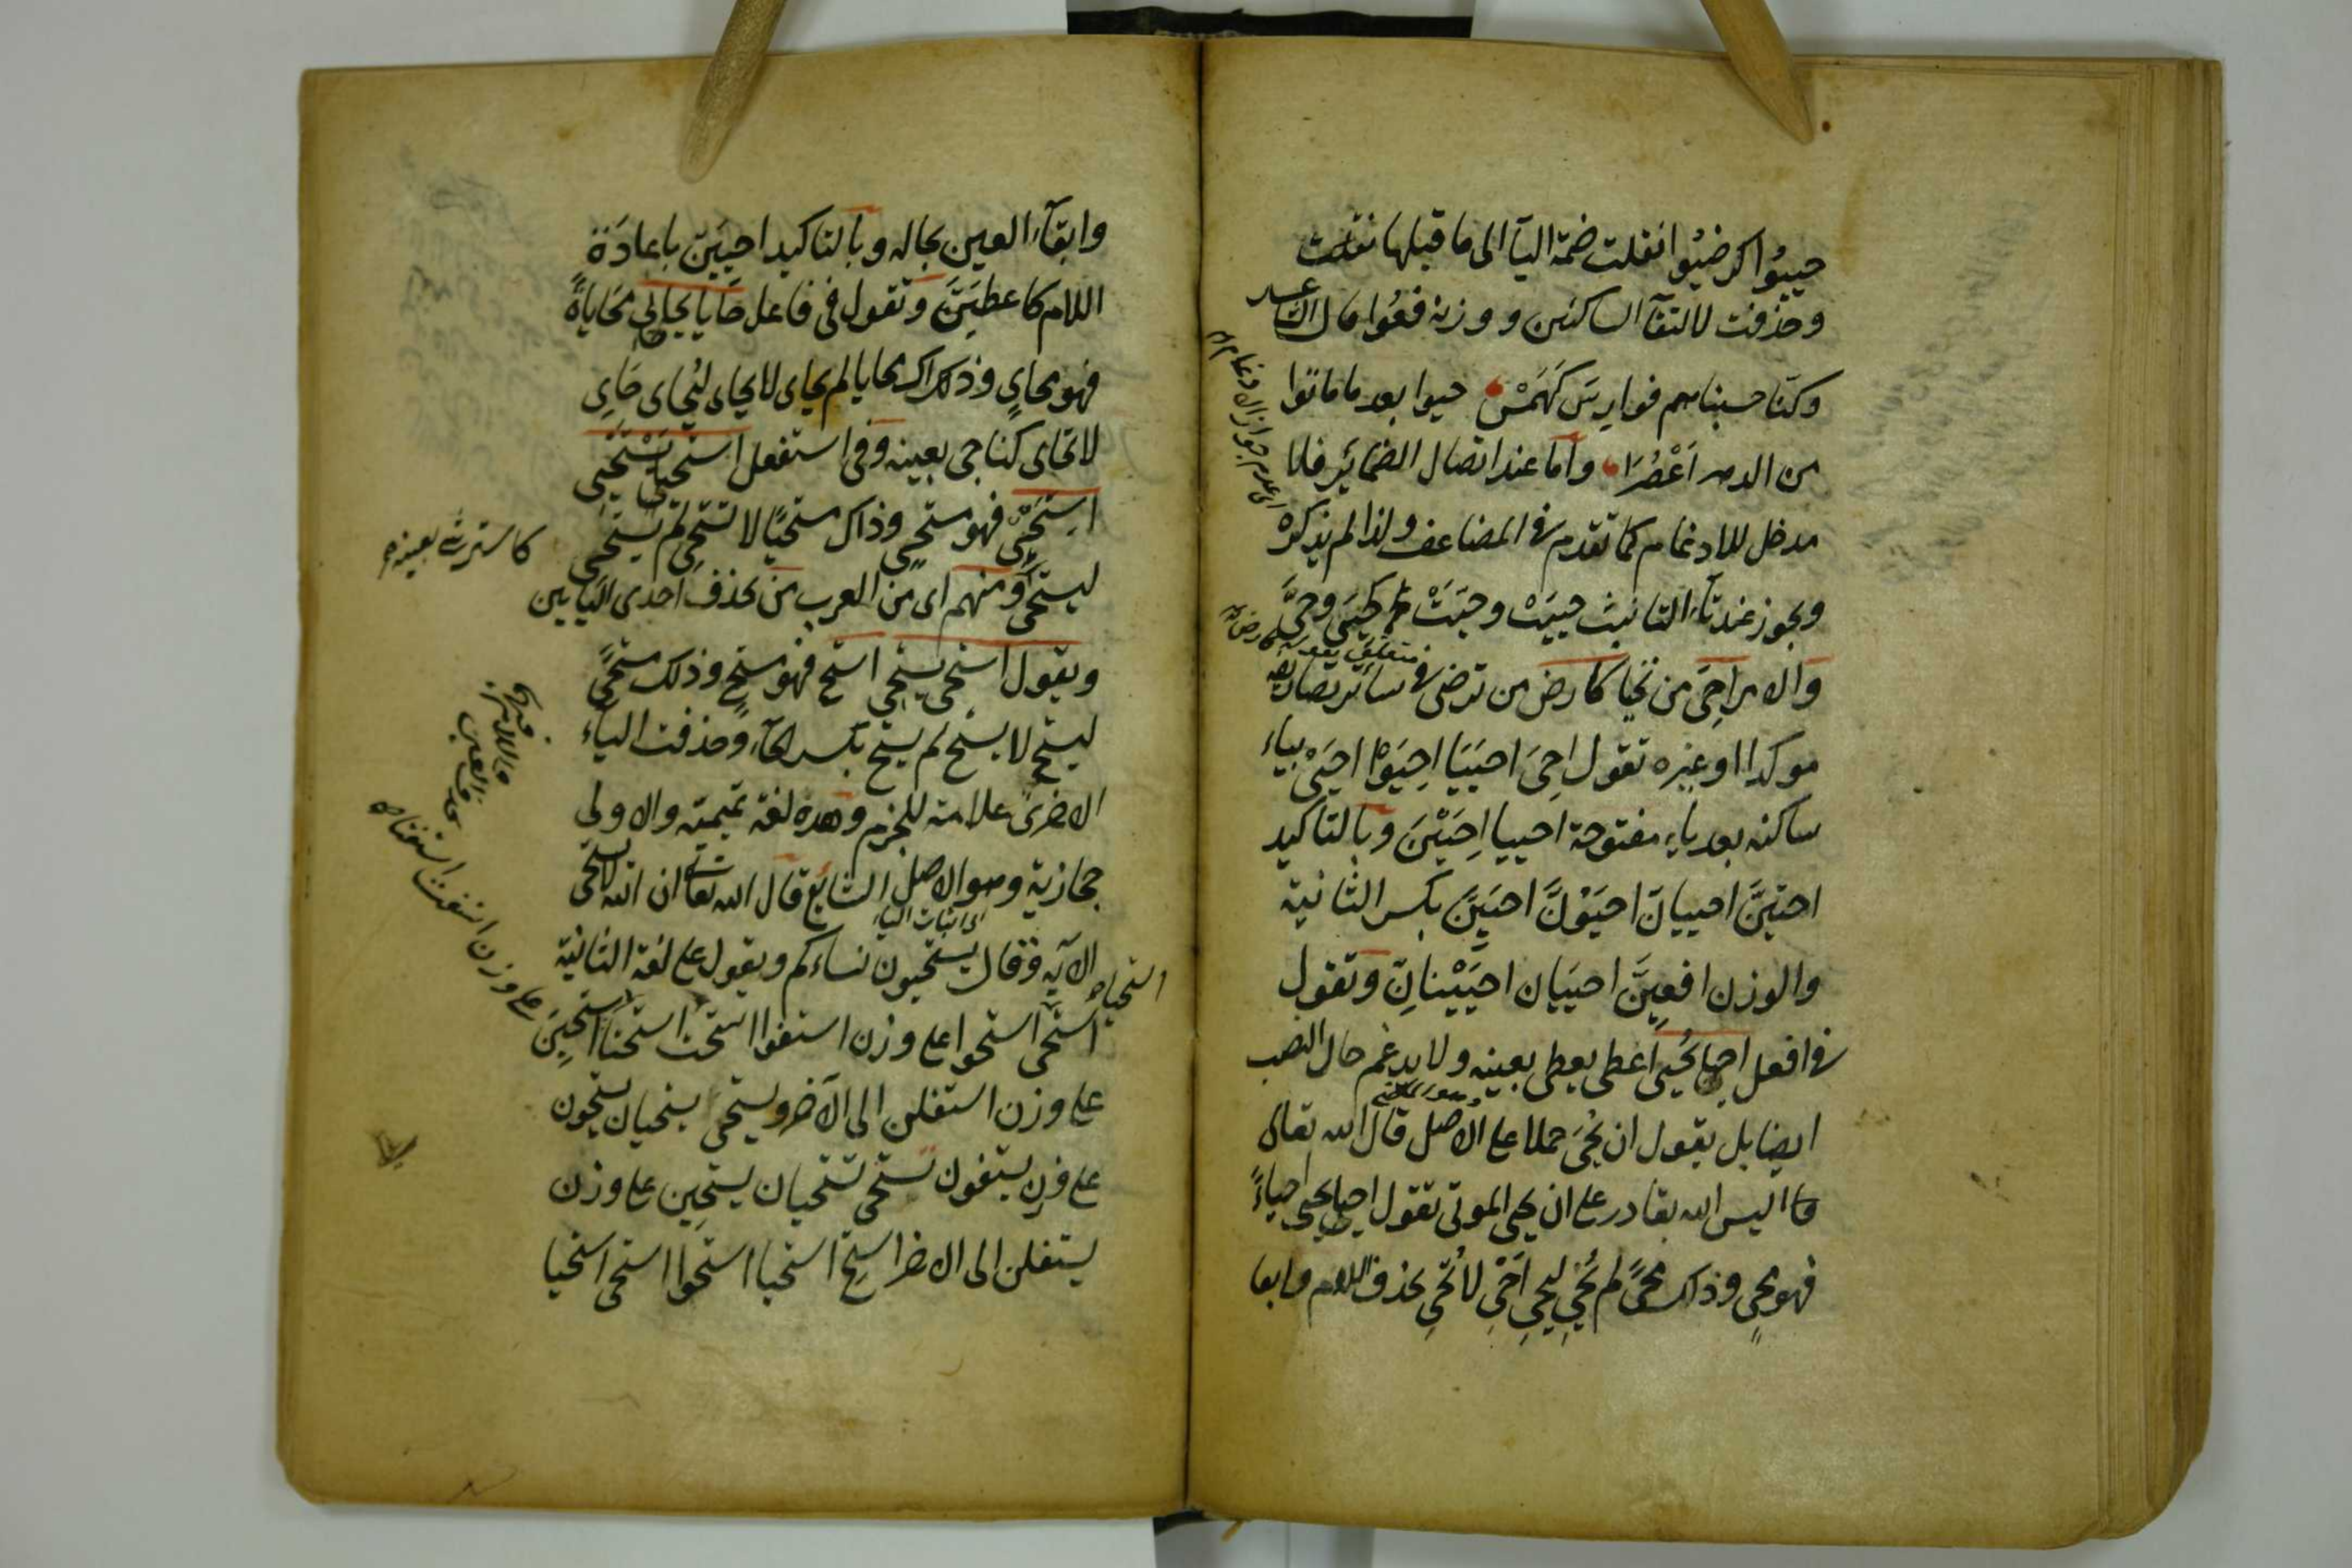 حييوا كرضيوا انقلت ضمة اليآ الى ما قبلها نقلت
وحذفت لالتقآ الساكنين ووزنه فعوا قال الشاعر
وكنا حسبناهم فوارس كهمس حيوا بعد ما ماتوا
من الدهر اعصرا واما عند اتصال الضمائر فلا
مدخل للادغام كما تقدم في المضاعف ولذا لم يذكره
ويجوز عند تآء التانيث حييت وحيت كحيي وحي
والامر احي من تحيا كارض من ترضى في سائر تصاريفه
موكدا او غيره تقول احي احييا احيوا احيي بياء
ساكنه بعد ياء مفتوحة احييا احيين وبالتاكيد
احيين احييان احيون احيين بكسر الثانية
والوزن افعين احييان احيينان وتقول
في افعل احيا يحيي اعطى يعطى بعينه ولا يدغم حال النصب
ايضا بل يقول ان يحيي حملا على الاصل قال الله تعالى
اليس الله بقادر على ان يحيي الموتى تقول احيا يحيي احياء
فهو محي وذاك محيى لم يحي ليحي احي لا تحي بحذف اللام وابقا
اى عدم جواز الادغام
وابقآء العين بحاله وبالتاكيد احيين باعادة
اللام كاعطين وتقول فى فاعل حايا يحايى محاياة
فهو محاي وذاك محايا لم يحاى لا يحاى ليحاى حاي
لا تحاى كناجى بعينه وفى استفعل استحيا يستحيي
استحي فهو مستحيي وذاك مستحيا لا تستحي لم يستحيى
ليستحي ومنهم اى من العرب من يحذف احدى اليايين
ويقول استحى يستحي استح فهو مستح وذلك مستحى
ليستح لا يستح لم يستح بكسر الحآء وحذفت اليآء
الاخرى علامة للجزم وهذه لغة تميمية والاولى
حجازية وهو الاصل الشايع قال الله تعالى ان الله لا يستحي
اى اثبات اليآء
الآية وقال يستحيون نساءكم ويقول على لغة الثانية
استحى استحوا على وزن استفوا استحت استحتا استحين
على وزن استفلن الى الآخر ويستحي يستحيان يستحون
على وزن يستفون تستحى تستحيان يستحين على وزن
يستفلن الى الاخر استح استحيا استحوا استحى استحيا
كاسترشى بعينه
على وزن استفت استفتا